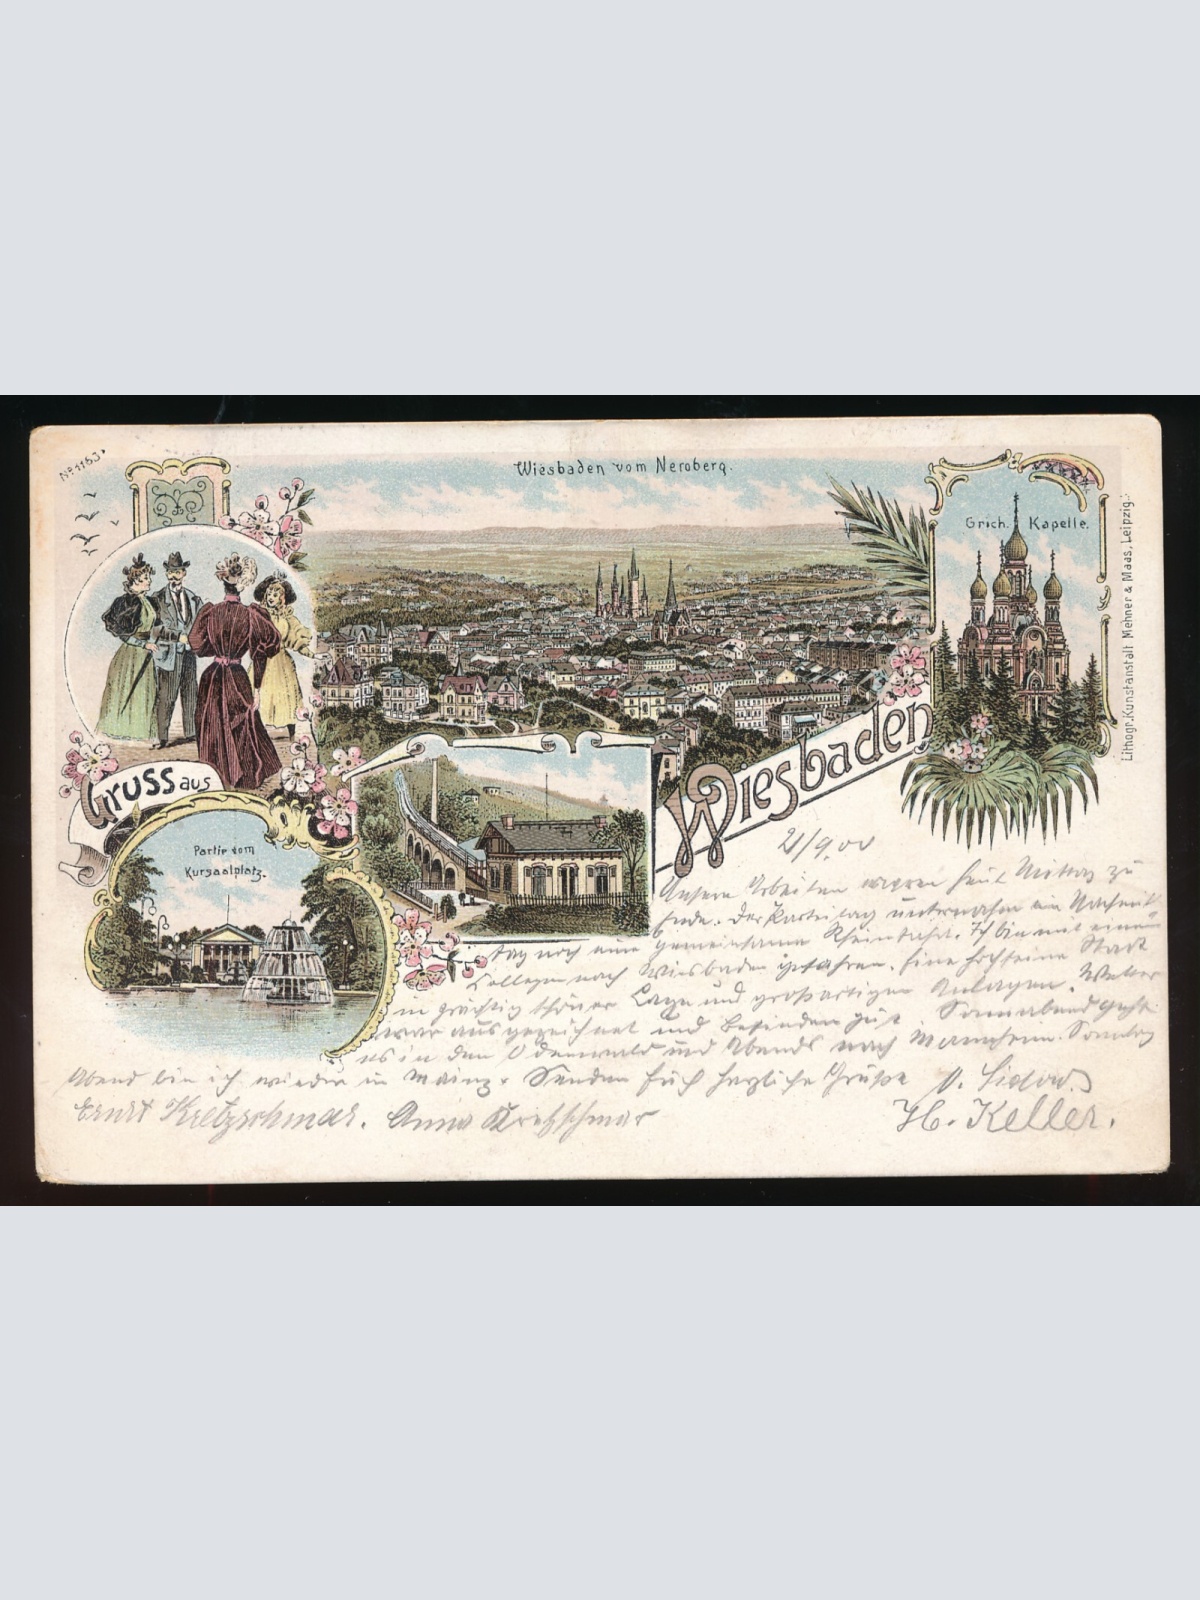 No 1163
Wiesbaden vom Neroberg.
Grich. Kapelle.
Lithogr. Kunstanstalt Mehner & Maas, Leipzig.
Gruss aus
Wiesbaden
Partie vom
Kursaalplatz.
21/9.00
Unsere Arbeiten waren heut Mittag zu
Ende. Der Parteitag unternahm am Nachmit
tag noch eine gemeinsame Rheinfahrt. Ich bin mit einem
Collegen nach Wiesbaden gefahren. Eine hochfeine Stadt
in prächtig schöner Lage und großartigen Anlagen. Wetter
war ausgezeichnet und Befinden gut. Sonnabend geht
es in den Odenwald und Abends nach Mannheim. Sonntag
Abend bin ich wieder in Mainz. Senden Euch herzliche Grüße
Ernst Kretzschmar. Anna Kretzschmar
H. Keller.